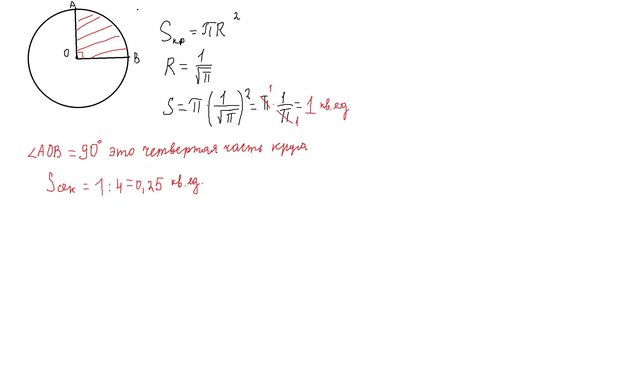 A
O
B
Sкр = πR²
R = 1/√π
S = π · (1/√π)² = π · 1/π = 1 кв.ед
∠AOB = 90° это четвертая часть круга
Sсек = 1 : 4 = 0,25 кв.ед.